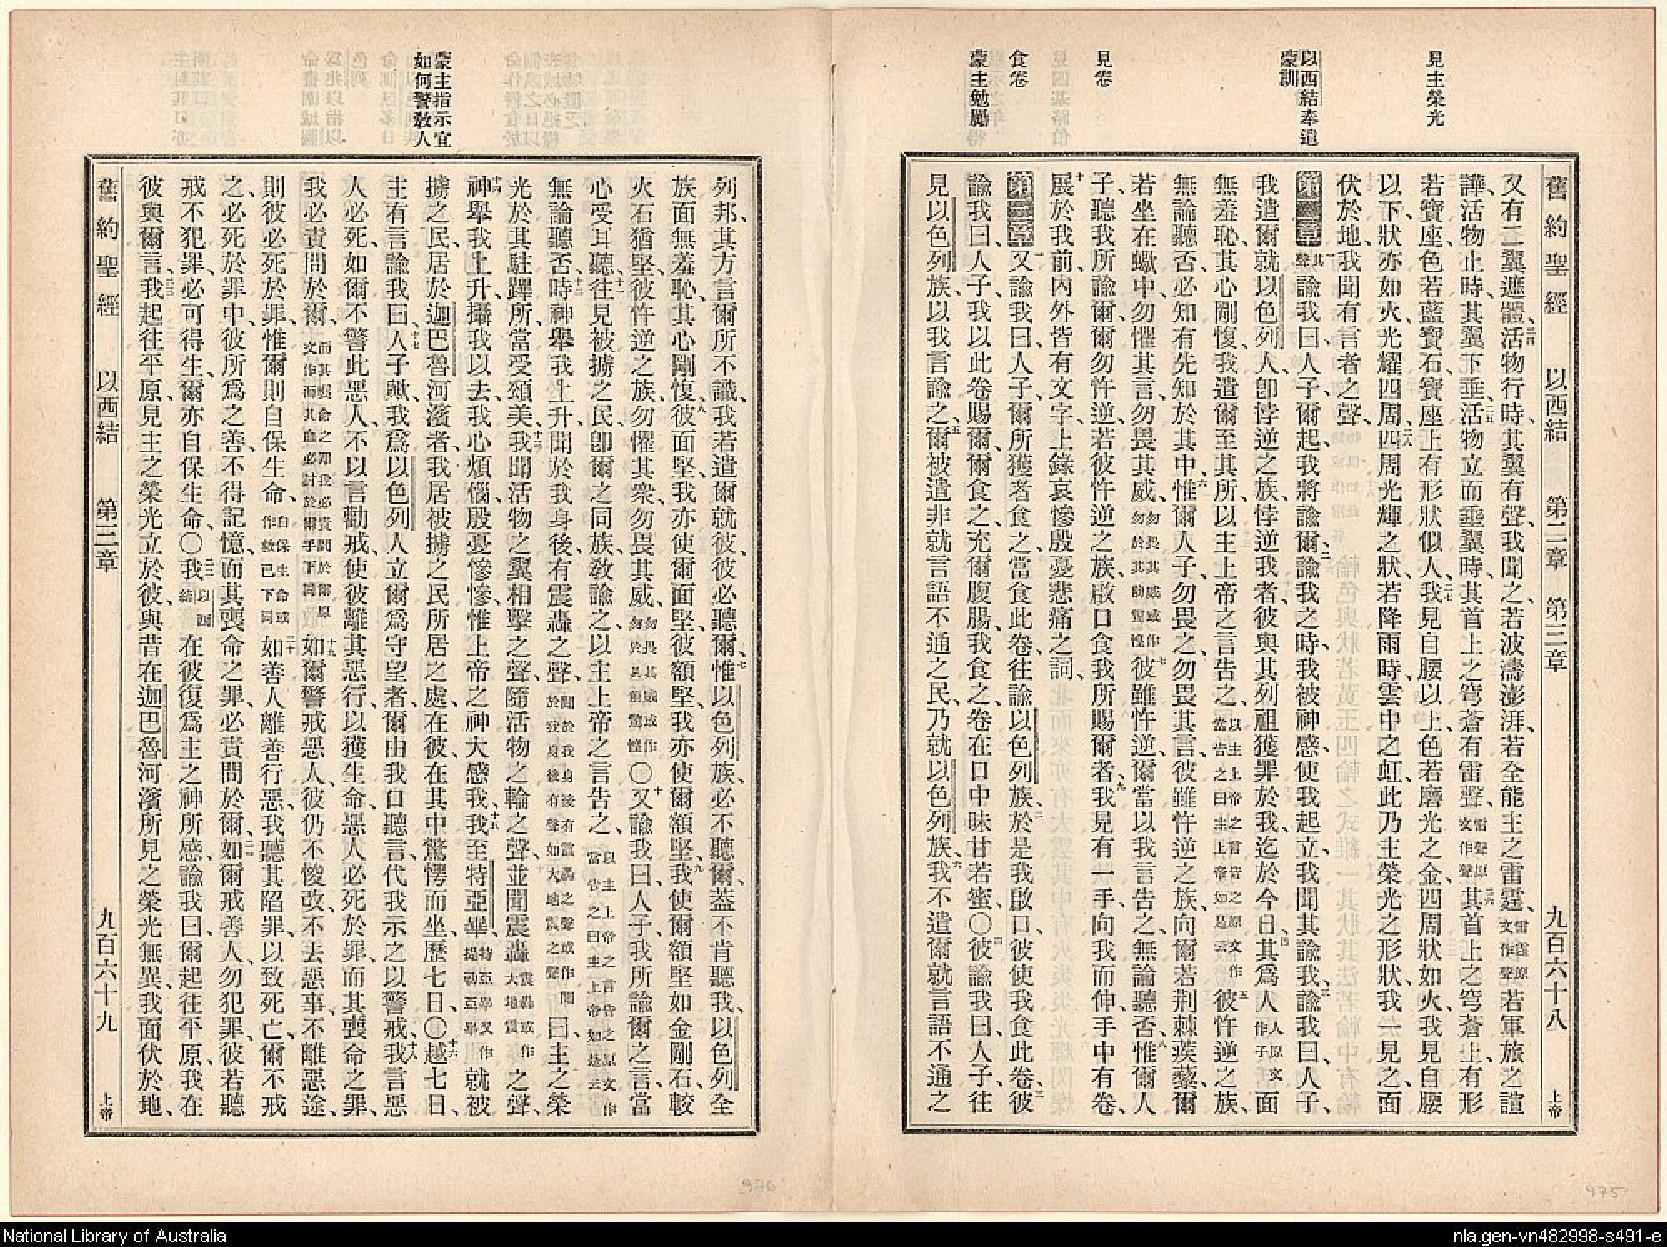 見主榮光
以西結奉遣
蒙訓
見卷
食卷
蒙主勉勵
舊約聖經 以西結 第二章 第三章 九百六十八 上帝
又有二翼遮體、二四活物行時、其翼有聲、我聞之、若波濤澎湃、若全能主之雷霆、雷霆原文作聲若軍旅之諠
譁、活物止時、其翼下垂、二五活物立而垂翼時、其首上之穹蒼有雷聲、雷聲原文作聲二六其首上之穹蒼上有形
若寶座、色若藍寶石、寶座上有形狀似人、二七我見自腰以上、色若磨光之金、四周狀如火、我見自腰
以下、狀亦如火、光耀四周、二八四周光輝之狀、若降雨時雲中之虹、此乃主榮光之形狀、我一見之、面
伏於地、我聞有言者之聲、
第二章 一其聲諭我曰、人子、爾起、我將諭爾、二諭我之時、我被神感、使我起立、我聞其諭我、三諭我曰、人子、
我遣爾就以色列人、卽悖逆之族、悖逆我者、彼與其列祖獲罪於我、迄於今日、四其爲人人原文作子面
無羞恥、其心剛愎、我遣爾至其所、以主上帝之言告之、以主上帝之言告之原文作當告之曰主上帝如是云五彼忤逆之族、
無論聽否、必知有先知於其中、六惟爾人子、勿畏之、勿畏其言、彼雖忤逆之族、向爾若荆棘蒺藜、爾
若坐在蠍中、勿懼其言、勿畏其威、勿畏其威或作勿於其前驚惶七彼雖忤逆、爾當以我言告之、無論聽否、八惟爾人
子、聽我所諭爾、爾勿忤逆、若彼忤逆之族、啟口食我所賜爾者、九我見有一手向我而伸、手中有卷、
十展於我前、內外皆有文字、上錄哀慘殷憂悲痛之詞、
第三章 一又諭我曰、人子、爾所獲者食之、當食此卷、往諭以色列族、二於是我啟口、彼使我食此卷、三彼
諭我曰、人子、我以此卷賜爾、爾食之、充爾腹腸、我食之、卷在口中、味甘若蜜、〇四彼諭我曰、人子、往
見以色列族、以我言諭之、五爾被遣、非就言語不通之民、乃就以色列族、六我不遣爾就言語不通之
蒙主指示宜
如何警敎人
列邦、其方言爾所不識、我若遣爾就彼、彼必聽爾、七惟以色列族、必不聽爾、蓋不肯聽我、以色列全
族、面無羞恥、其心剛愎、八彼面堅、我亦使爾面堅、彼額堅、我亦使爾額堅、九我使爾額堅如金剛石、較
火石猶堅、彼忤逆之族、勿懼其衆、勿畏其威、勿畏其威或作勿於其前驚惶〇十又諭我曰、人子、我所諭爾之言、當
心受耳聽、十一往見被擄之民、卽爾之同族、敎諭之、以主上帝之言告之、以主上帝之言告之原文作當告之曰主上帝如是云
無論聽否、十二時神舉我上升、聞於我身後、有震轟之聲、聞於我身後有震轟之聲或作聞於我身後有聲如大地震之聲曰、主之榮
光、於其駐蹕所、當受頌美、十三我聞活物之翼相擊之聲、隨活物之輪之聲、並聞震轟震轟或作大地震之聲、
十四神舉我上升、攝我以去、我心煩惱、殷憂慘慘、惟上帝之神大感我、十五我至特亞畢、特亞畢又作提勒亞畢就被
擄之民、居於迦巴魯河濱者、我居被擄之民所居之處、在彼、在其中驚愕而坐、歷七日、〇十六越七日、
主有言諭我曰、十七人子歟、我爲以色列人立爾爲守望者、爾由我口聽言、代我示之以警戒、十八我言惡
人必死、如爾不警此惡人、不以言勸戒、使彼離其惡行、以獲生命、惡人必死於罪、而其喪命之罪、
我必責問於爾、而其喪命之罪我必責問於爾原文作而其血必討於爾手下同十九如爾警戒惡人、彼仍不悛改、不去惡事、不離惡途、
則彼必死於罪、惟爾則自保生命、自保生命或作救己下同二十如善人離善行惡、我聽其陷罪、以致死亡、爾不戒
之、必死於罪中、彼所爲之善、不得記憶、而其喪命之罪、必責問於爾、二一如爾戒善人勿犯罪、彼若聽
戒不犯罪、必可得生、爾亦自保生命、〇二二我以西結在彼、復爲主之神所感、諭我曰、爾起往平原、我在
彼與爾言、二三我起往平原、見主之榮光立於彼、與昔在迦巴魯河濱所見之榮光無異、我面伏於地、
舊約聖經 以西結 第三章 九百六十九 上帝
976
975
National Library of Australia
nla.gen-vn482998-s491-e